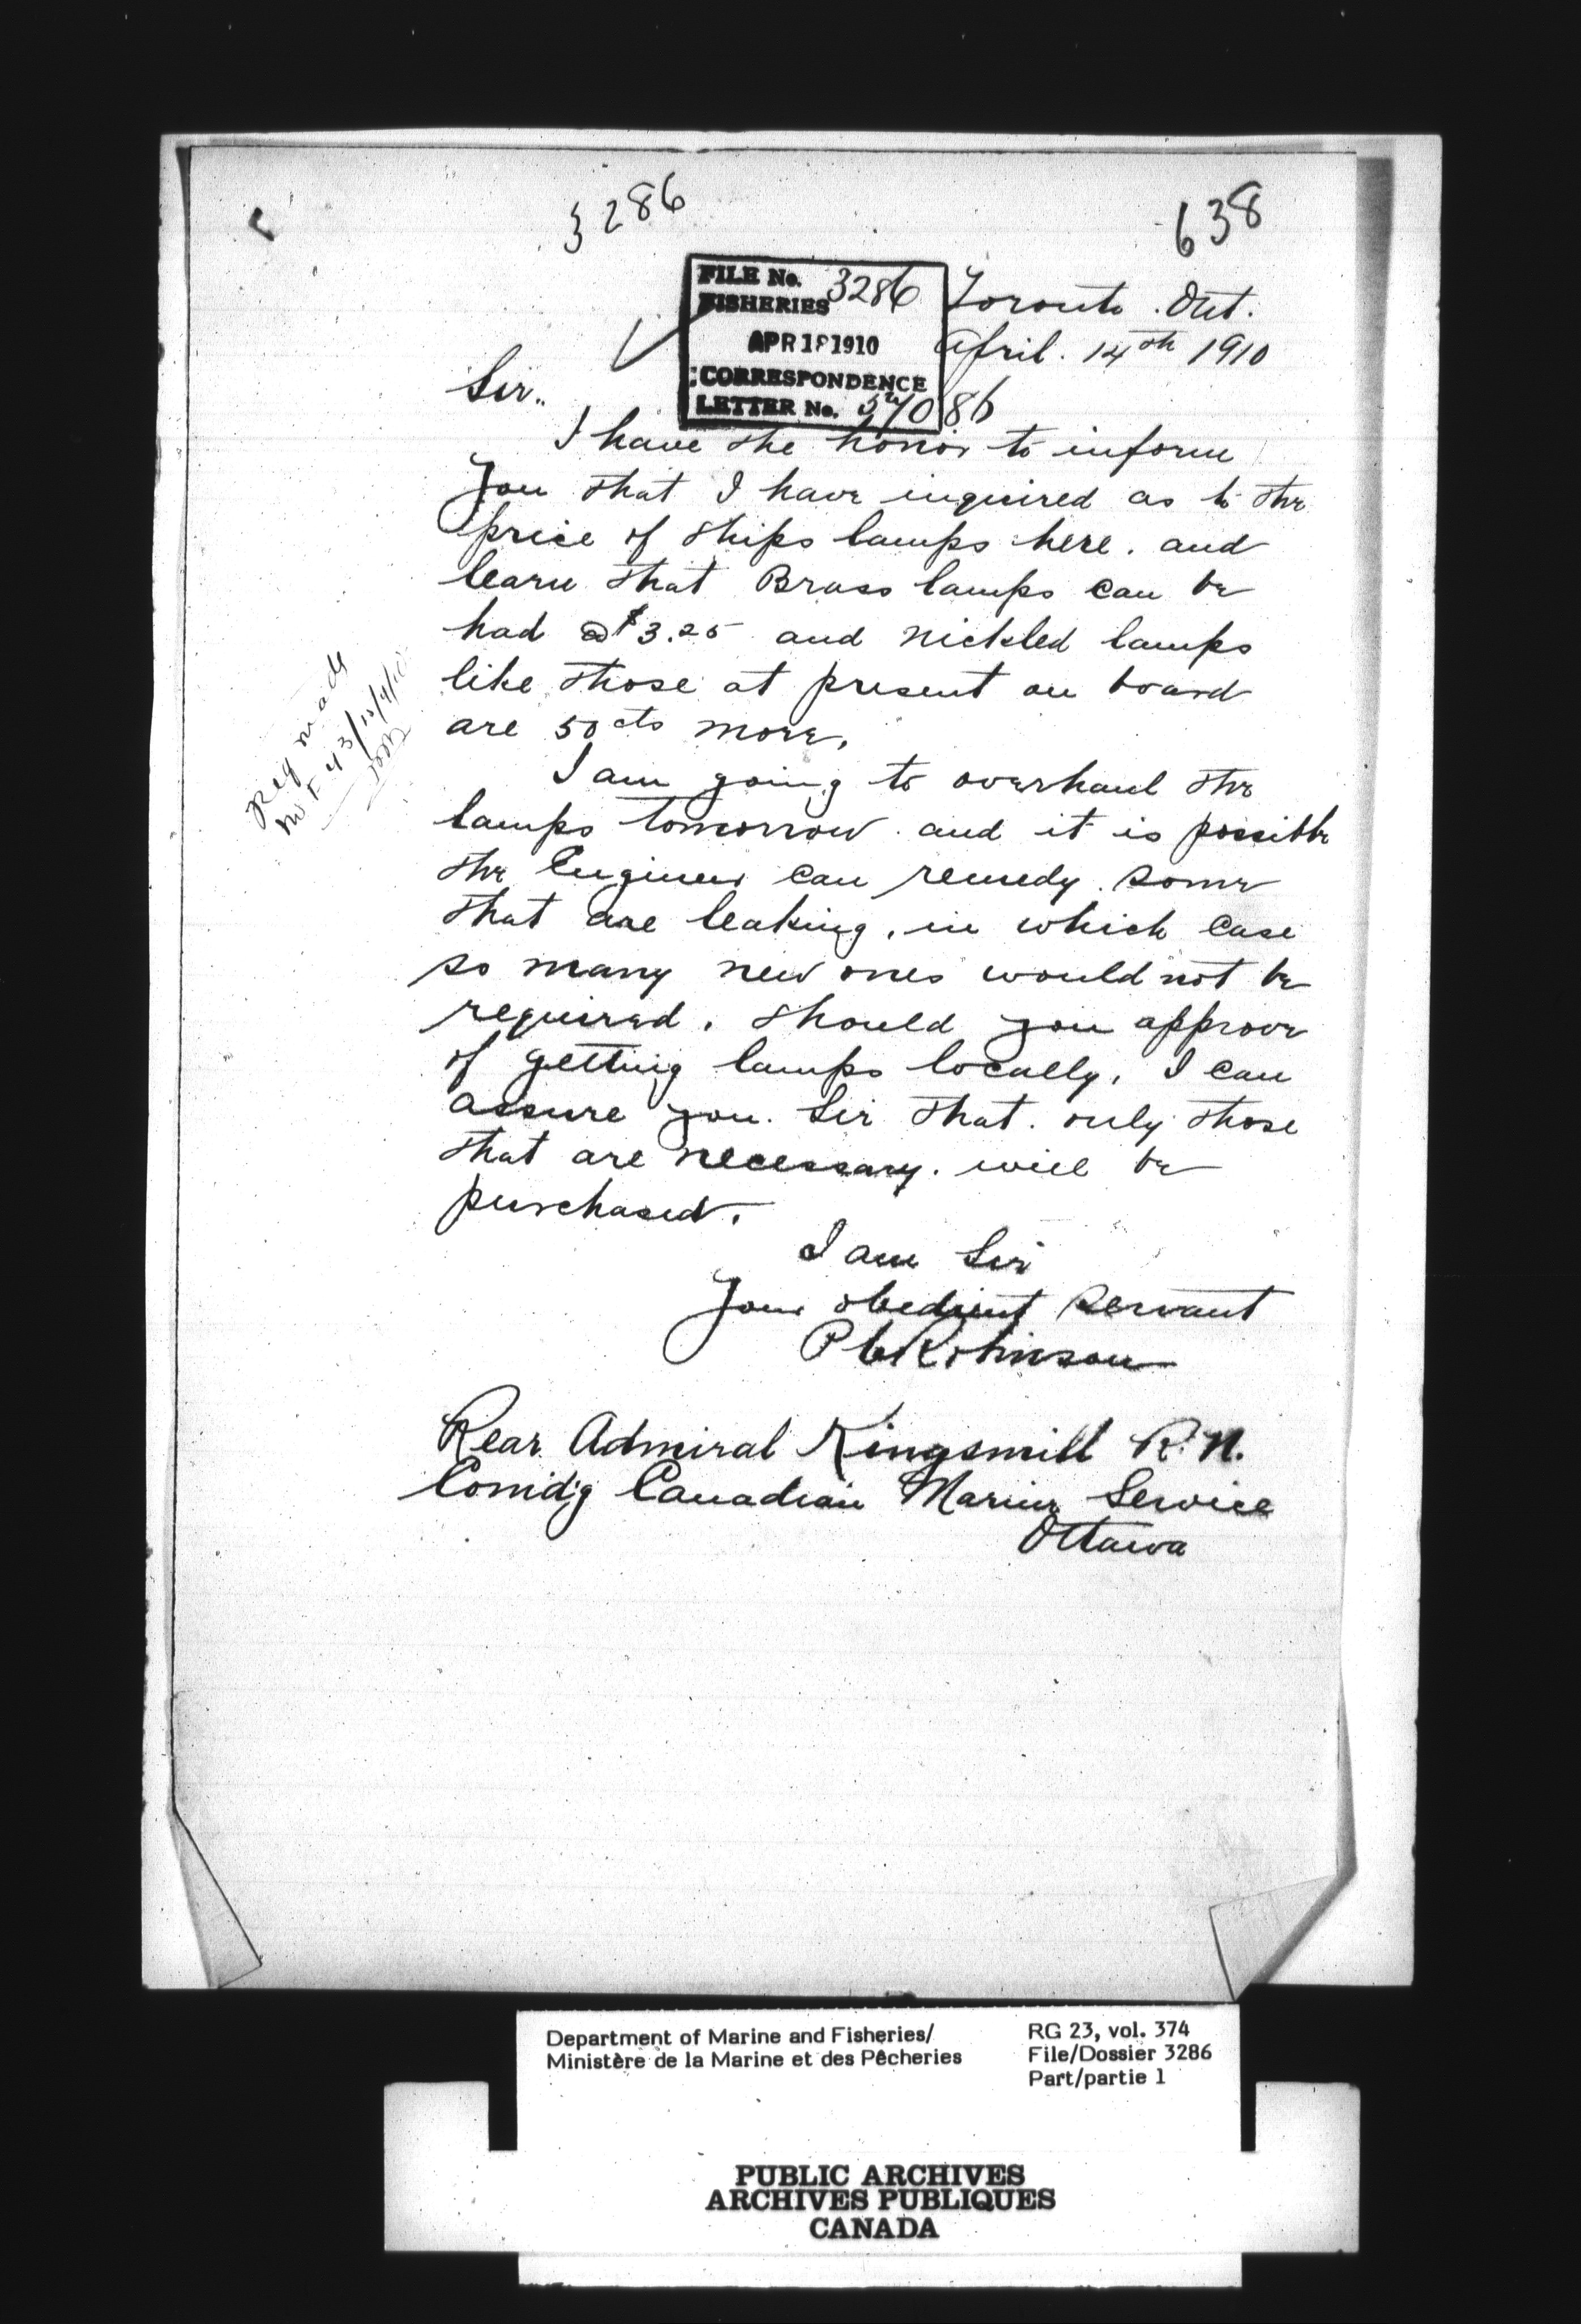 3286
638
FILE No. 3286
FISHERIES
APR 18 1910
CORRESPONDENCE
LETTER No. 086
Toronto. Ont.
April. 14th 1910
Sir..
I have the honor to inform
you that I have inquired as to the
price of ships lamps here. and
learn that Brass lamps can be
had @ $3.25 and nickled lamps
like those at present on board
are 50 cts more.
I am going to overhaul the
lamps tomorrow. and it is possible
the Engineer can remedy. some
that are leaking, in which case
so many new ones would not be
required. Should you approve
of getting lamps locally, I can
assure you. Sir that. only those
that are necessary. will be
purchased.
I am Sir
Your obedient servant
P C Robinson
Rear Admiral Kingsmill R.N.
Comd'g Canadian Marine Service
Ottawa
Req made
Department of Marine and Fisheries/
Ministère de la Marine et des Pêcheries
RG 23, vol. 374
File/Dossier 3286
Part/partie 1
PUBLIC ARCHIVES
ARCHIVES PUBLIQUES
CANADA